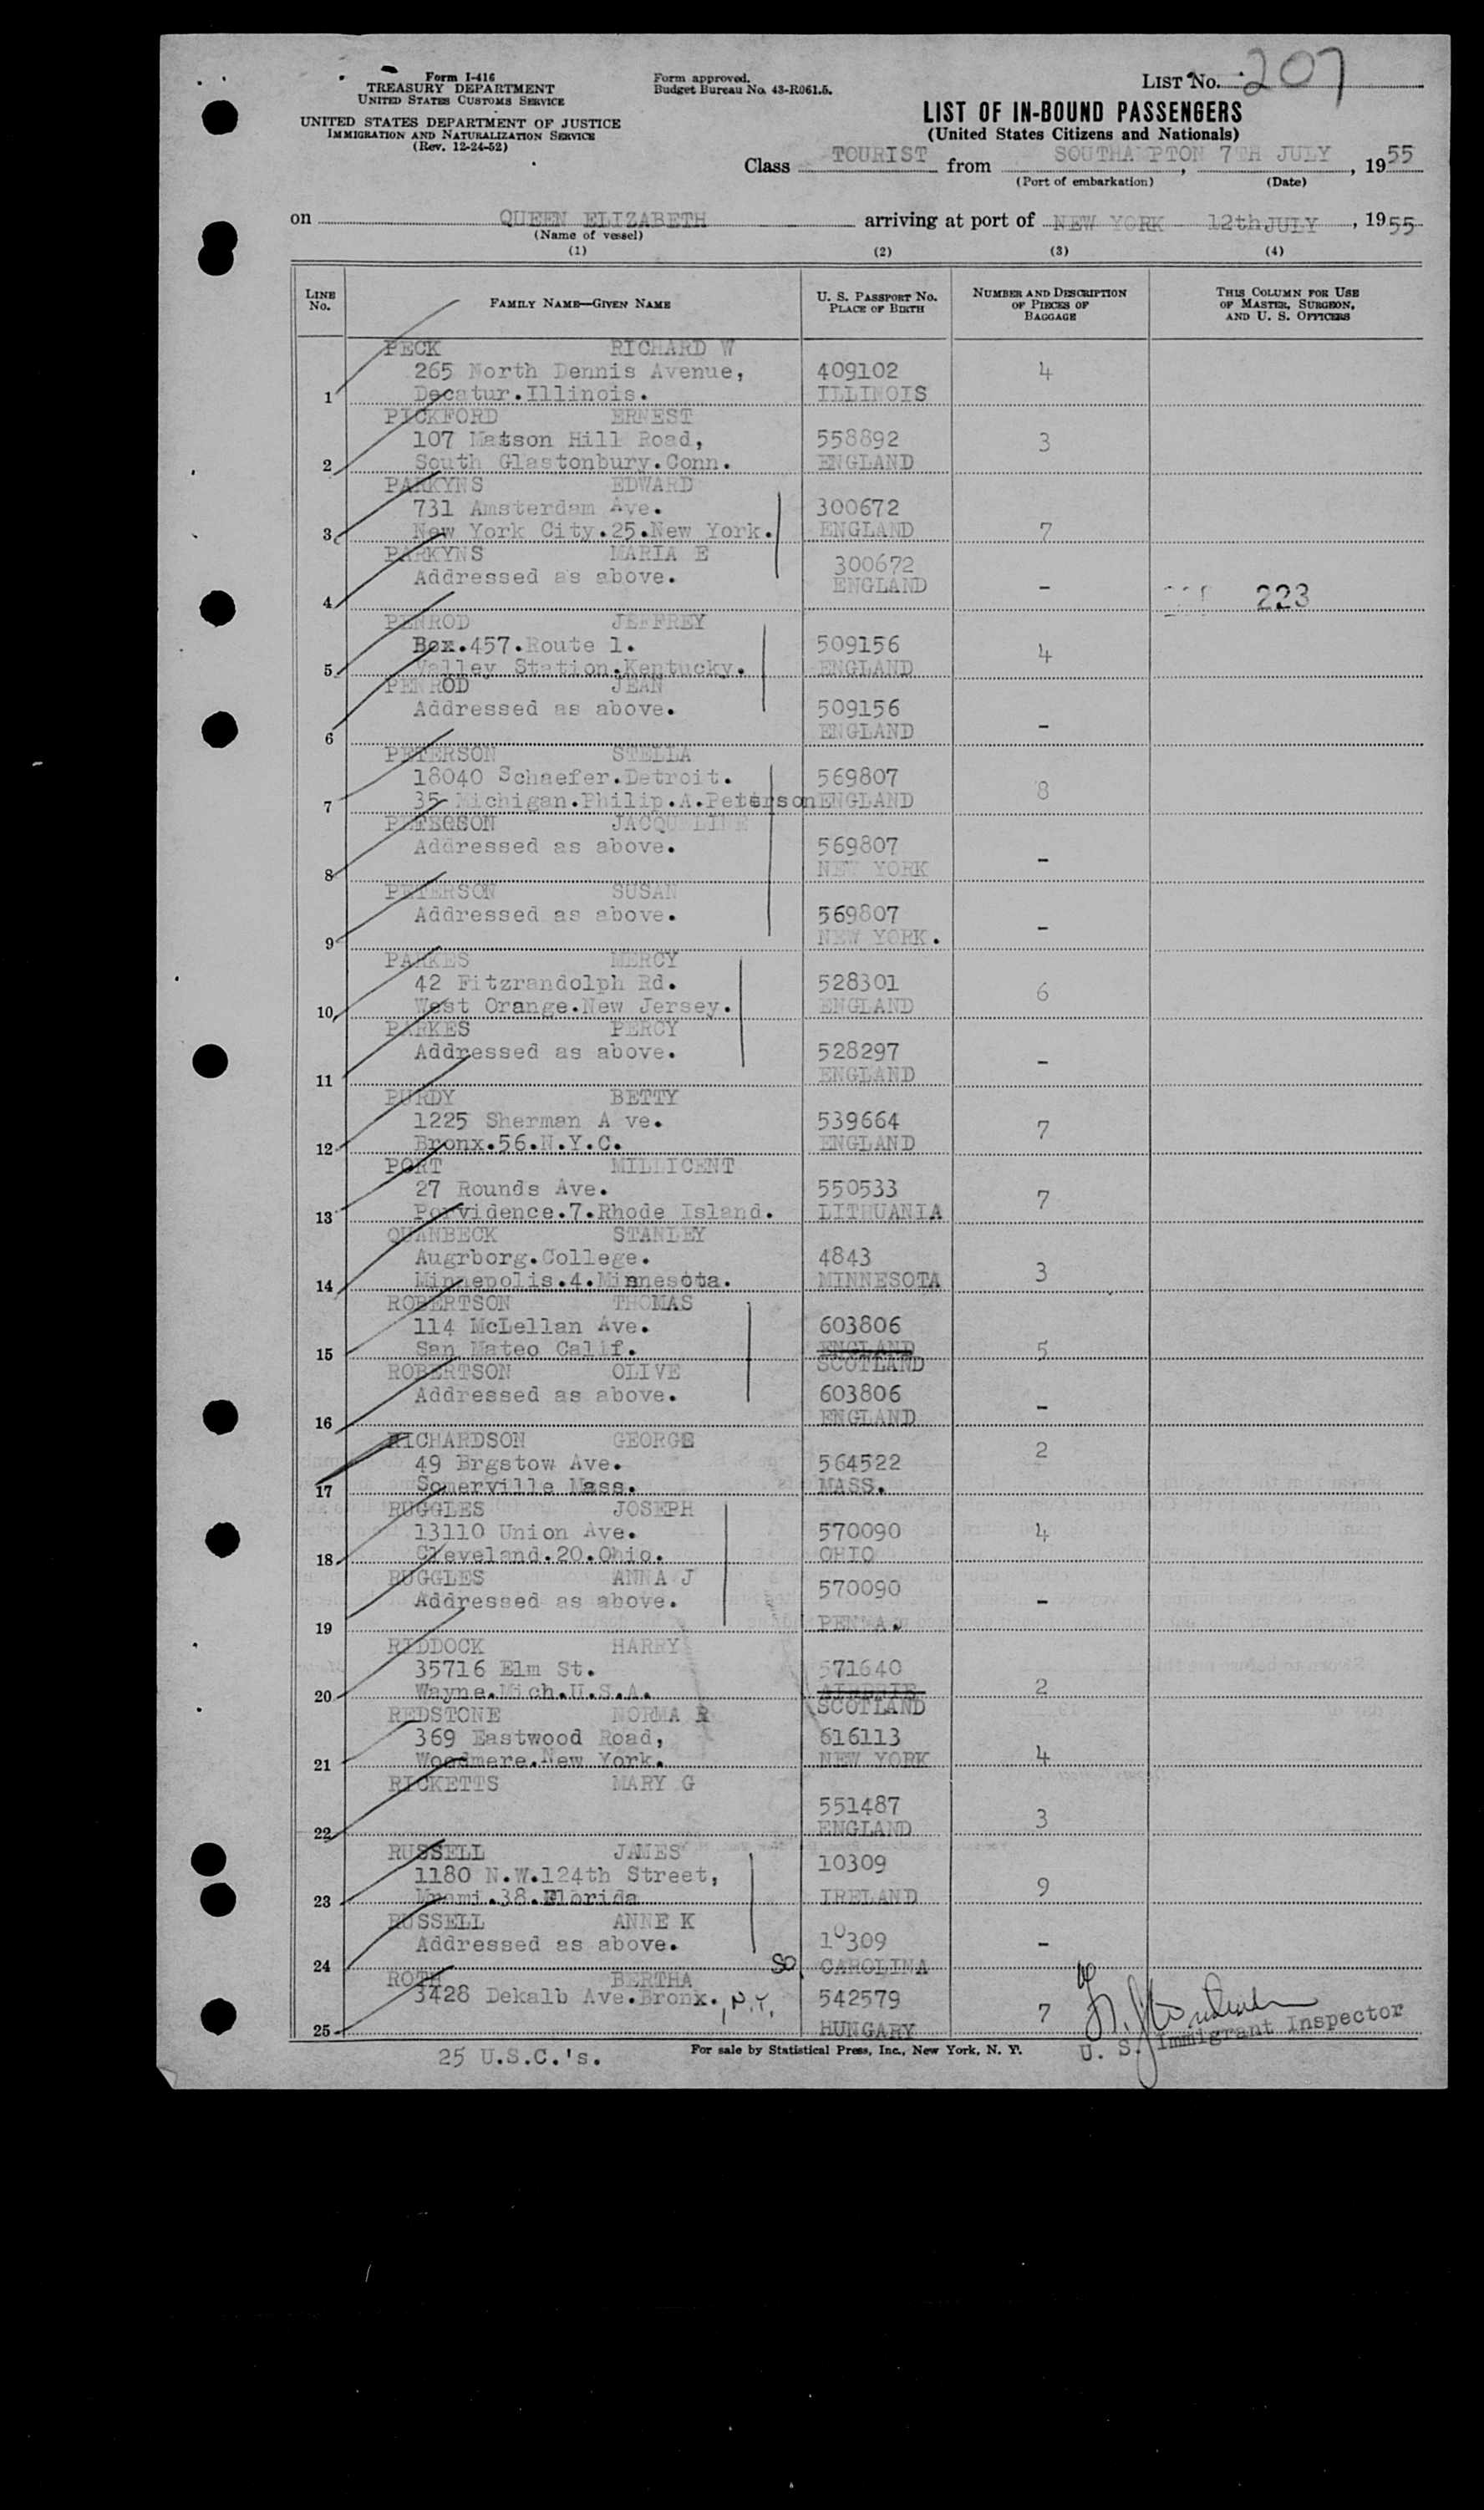 Form I-416
TREASURY DEPARTMENT
UNITED STATES CUSTOMS SERVICE
UNITED STATES DEPARTMENT OF JUSTICE
IMMIGRATION AND NATURALIZATION SERVICE
(Rev. 12-24-52)
Form approved.
Budget Bureau No. 43-R061.5.
LIST No. 207
LIST OF IN-BOUND PASSENGERS
(United States Citizens and Nationals)
Class TOURIST from SOUTHA PTON 7TH JULY, 1955
(Port of embarkation) (Date)
on QUEEN ELIZABETH arriving at port of NEW YORK 12th JULY, 1955
(Name of vessel)
(1) (2) (3) (4)
LINE No. FAMILY NAME—GIVEN NAME U. S. PASSPORT NO. PLACE OF BIRTH NUMBER AND DESCRIPTION OF PIECES OF BAGGAGE THIS COLUMN FOR USE OF MASTER, SURGEON, AND U. S. OFFICERS
PECK RICHARD W
265 North Dennis Avenue, 409102 4
1 Decatur.Illinois. ILLINOIS
PICKFORD ERNEST
107 Matson Hill Road, 558892 3
2 South Glastonbury.Conn. ENGLAND
PARKYNS EDWARD
731 Amsterdam Ave. 300672
3 New York City.25.New York. ENGLAND 7
PARKYNS MARIA E 300672
Addressed as above. ENGLAND -
4 223
PENROD JEFFREY
Box.457.Route 1. 509156 4
5 Valley Station.Kentucky. ENGLAND
PENROD JEAN
Addressed as above. 509156
6 ENGLAND -
PETERSON STELLA
18040 Schaefer.Detroit. 569807 8
7 35 Michigan.Philip.A.Peterson ENGLAND
PETERSON JACQUELINE
Addressed as above. 569807 -
8 NEW YORK
PETERSON SUSAN
Addressed as above. 569807 -
9 NEW YORK.
PARKES MERCY
42 Fitzrandolph Rd. 528301 6
10 West Orange.New Jersey. ENGLAND
PARKES PERCY
Addressed as above. 528297 -
11 ENGLAND
PURDY BETTY
1225 Sherman A ve. 539664 7
12 Bronx.56.N.Y.C. ENGLAND
PORT MILLICENT
27 Rounds Ave. 550533 7
13 Porvidence.7.Rhode Island. LITHUANIA
QUANBECK STANLEY
Augrborg.College. 4843 3
14 Minnepolis.4.Minnesota. MINNESOTA
ROBERTSON THOMAS
114 McLellan Ave. 603806
15 San Mateo Calif. ENGLAND 5
SCOTLAND
ROBERTSON OLIVE
Addressed as above. 603806 -
16 ENGLAND
RICHARDSON GEORGE 2
49 Brgstow Ave. 564522
17 Somerville Mass. MASS.
RUGGLES JOSEPH
13110 Union Ave. 570090 4
18 Cleveland.20.Ohio. OHIO
RUGGLES ANNA J 570090
Addressed as above. -
19 PENNA.
RIDDOCK HARRY
35716 Elm St. 571640
20 Wayne.Mich.U.S.A. 2
SCOTLAND
REDSTONE NORMA R
369 Eastwood Road, 616113
21 Woodmere.New York. NEW YORK 4
RICKETTS MARY G
551487 3
22 ENGLAND
RUSSELL JAMES 10309
1180 N.W.124th Street,
23 Miami.38.Florida IRELAND 9
RUSSELL ANNE K
Addressed as above. 10309 -
24 SO. CAROLINA
ROTH BERTHA
3428 Dekalb Ave.Bronx. , N.Y. 542579 7
25 HUNGARY
U. S. Immigrant Inspector
25 U.S.C.'s.
For sale by Statistical Press, Inc., New York, N. Y.